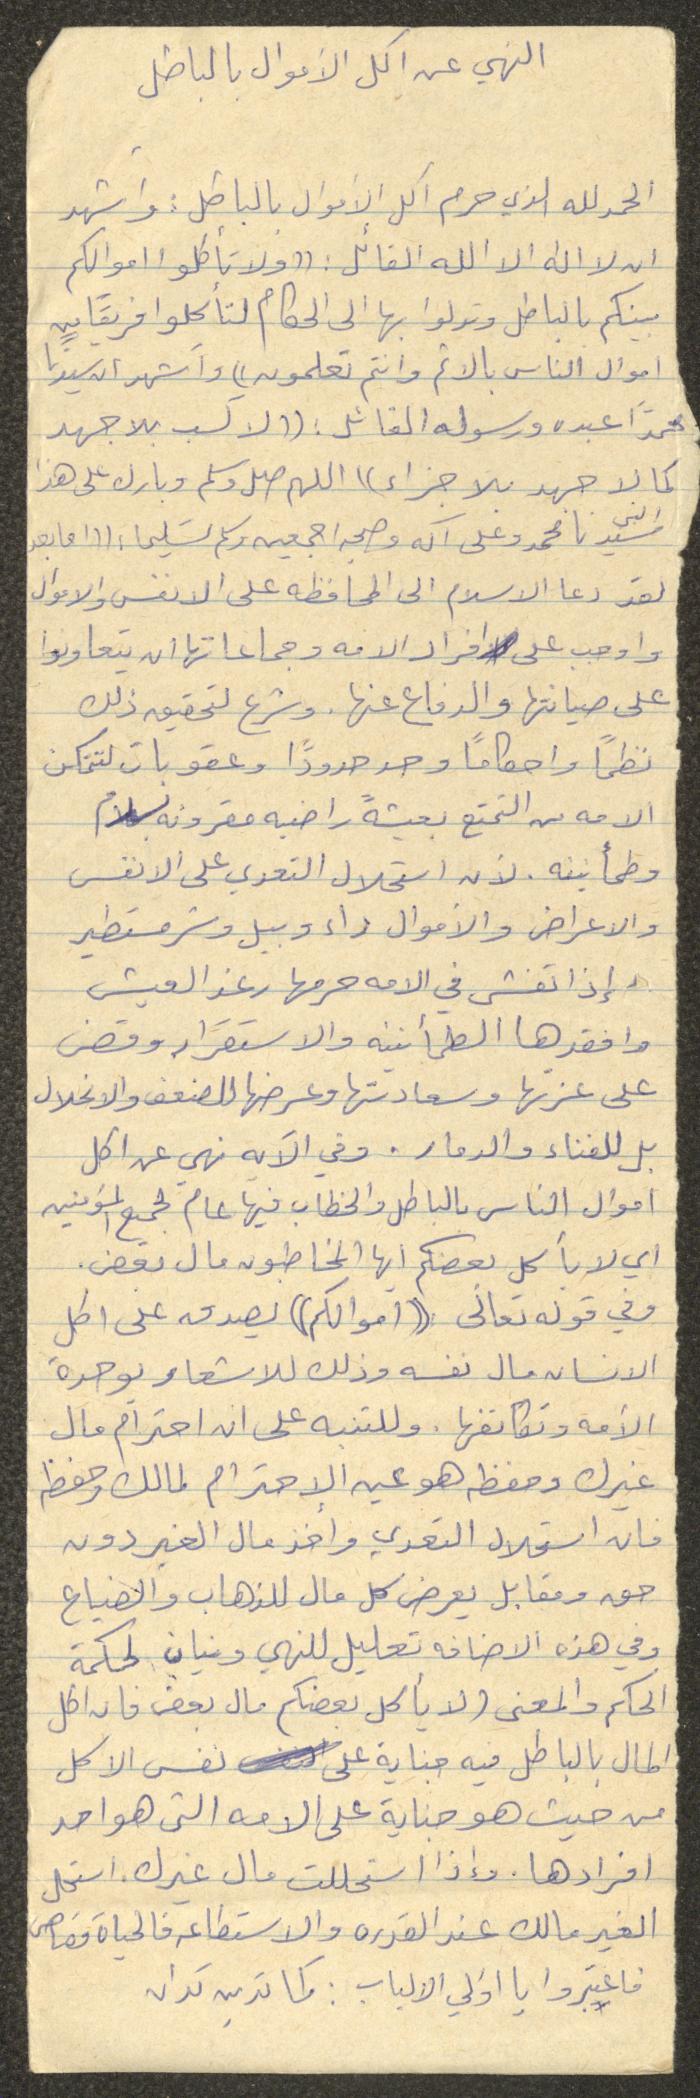 النهي عن اكل الأموال بالباطل
الحمد لله الذي حرم اكل الأموال بالباطل: وأشهد
ان لا اله الا الله القائل: ((ولا تأكلوا اموالكم
بينكم بالباطل وتدلوا بها الى الحكام لتأكلوا فريقا من
اموال الناس بالاثم وانتم تعلمون)) وأشهد ان سيدنا
محمدًا عبده ورسوله القائل: ((لا كسب بلا جهد
كما لا جهد بلا جزاء)) اللهم صل وسلم وبارك على هذا
النبي سيدنا محمد وعلى آله وصحبه اجمعين وسلم تسليما: ((اما بعد
لقد دعا الاسلام الى المحافظه على الانفس والاموال
واوجب على افراد الامه وجماعاتها ان يتعاونوا
على صيانتها والدفاع عنها. وشرع لتحقيق ذلك
نظمًا واحكامًا وحد حدودًا وعقوبات لتتمكن
الامه من التمتع بعيشةً راضيه مقرونه بسلام
وطمأنينه. لأن استحلال التعدي على الانفس
والاعراض والأموال داء وبيل وشر مستطير
إذا تفشى في الامه حرمها رغد العيش
وافقدها الطمأنينه والاستقرار وقضى
على عزتها وسعادتها وعرضها للضعف والانحلال
بل للفناء والدمار. وفي الآيه نهي عن اكل
اموال الناس بالباطل والخطاب فيها عام لجميع المؤمنين
اي لا يأكل بعضكم ايها المخاطبون مال بعض.
وفي قوله تعالى ((اموالكم)) يصدق على اكل
الانسان مال نفسه وذلك للاشعار بوحدة
الأمه وتكاتفها. وللتنبه على ان احترام مال
غيرك وحفظه هو عين الإحترام لمالك وحفظه
فان استحلال التعدي وأخذ مال الغير دون
حق ومقابل يعرض كل مال للذهاب والضياع
وفي هذه الاضافه تعليل للنهي وبيان لحكمة
الحكم والمعنى (لا يأكل بعضكم مال بعض فان اكل
المال بالباطل فيه جناية على نفس الاكل
من حيث هو جناية على الامه التي هو احد
افرادها. وإذا استحللت مال غيرك. استحل
الغير مالك عند القدره والاستطاعه فالحياة قصاص
فاعتبروا يا اولي الالباب: كما تدين تدان